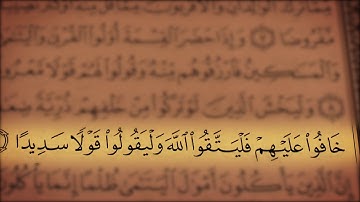 مَّفْرُوضًا وَإِذَا حَضَرَ ٱلْقِسْمَةَ أُو۟لُوا۟ ٱلْقُرْبَىٰ
وَٱلْمَسَـٰكِينُ فَٱرْزُقُوهُم مِّنْهُ وَقُولُوا۟ لَهُمْ قَوْلًا
وَلْيَخْشَ ٱلَّذِينَ لَوْ تَرَكُوا۟ مِنْ خَلْفِهِمْ ذُرِّيَّةً
خَافُوا۟ عَلَيْهِمْ فَلْيَتَّقُوا۟ ٱللَّهَ وَلْيَقُولُوا۟ قَوْلًا سَدِيدًا
إِنَّ ٱلَّذِينَ يَأْكُلُونَ أَمْوَٰلَ ٱلْيَتَـٰمَىٰ ظُلْمًا إِنَّمَا